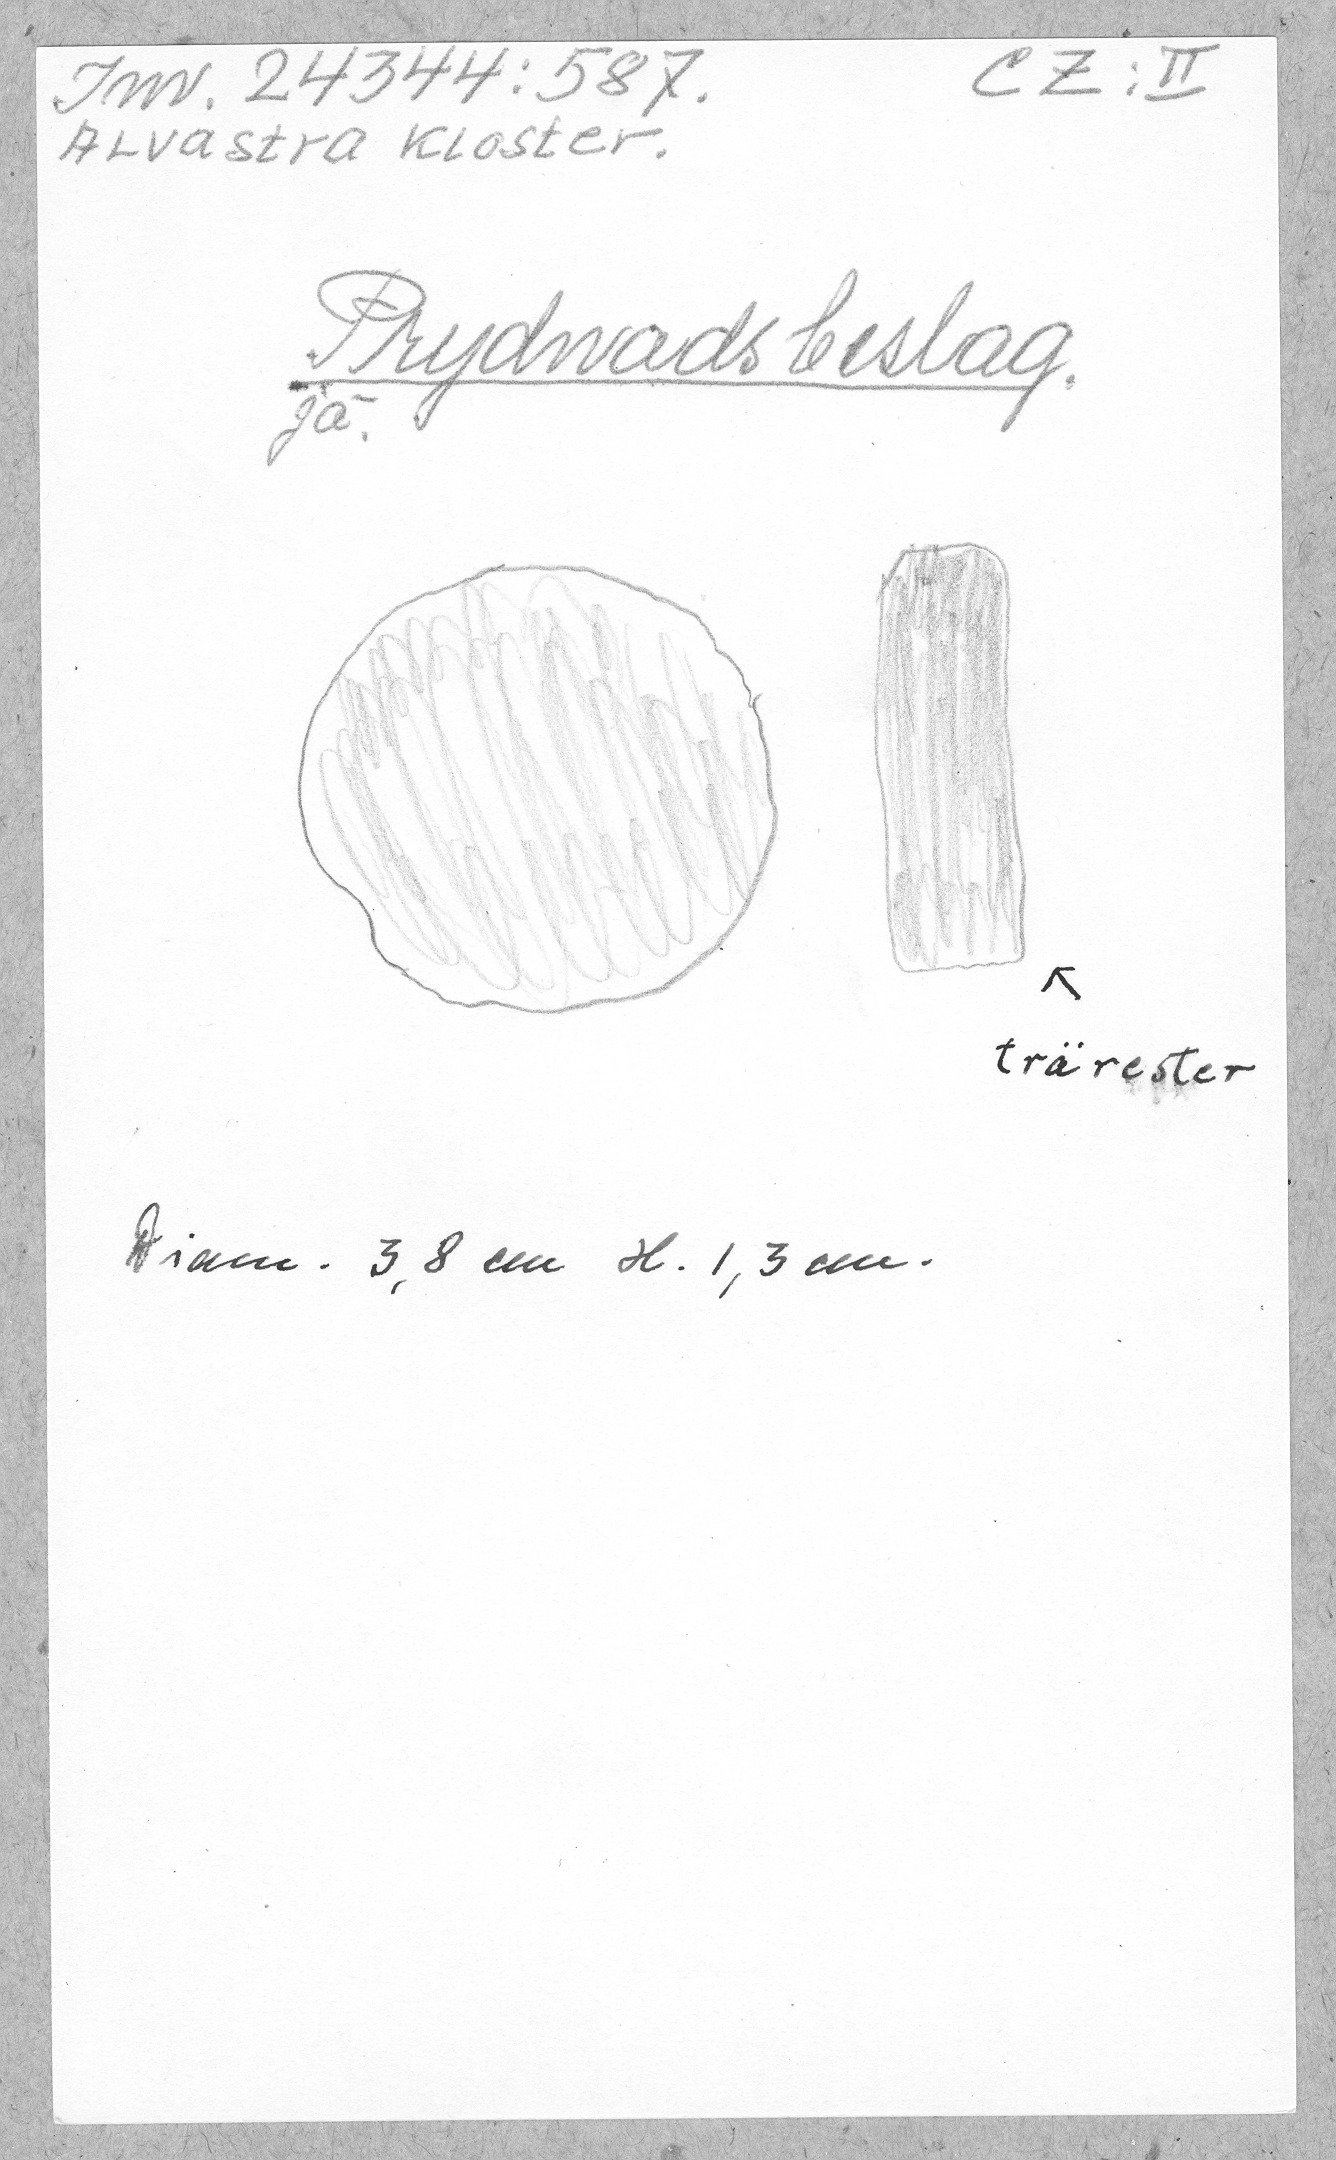 Inv. 24344:587. CZ:II
ALVastra KLoster.
Prydnadsbeslag.
jä.
trärester
Diam. 3,8 cm H. 1,3 cm.